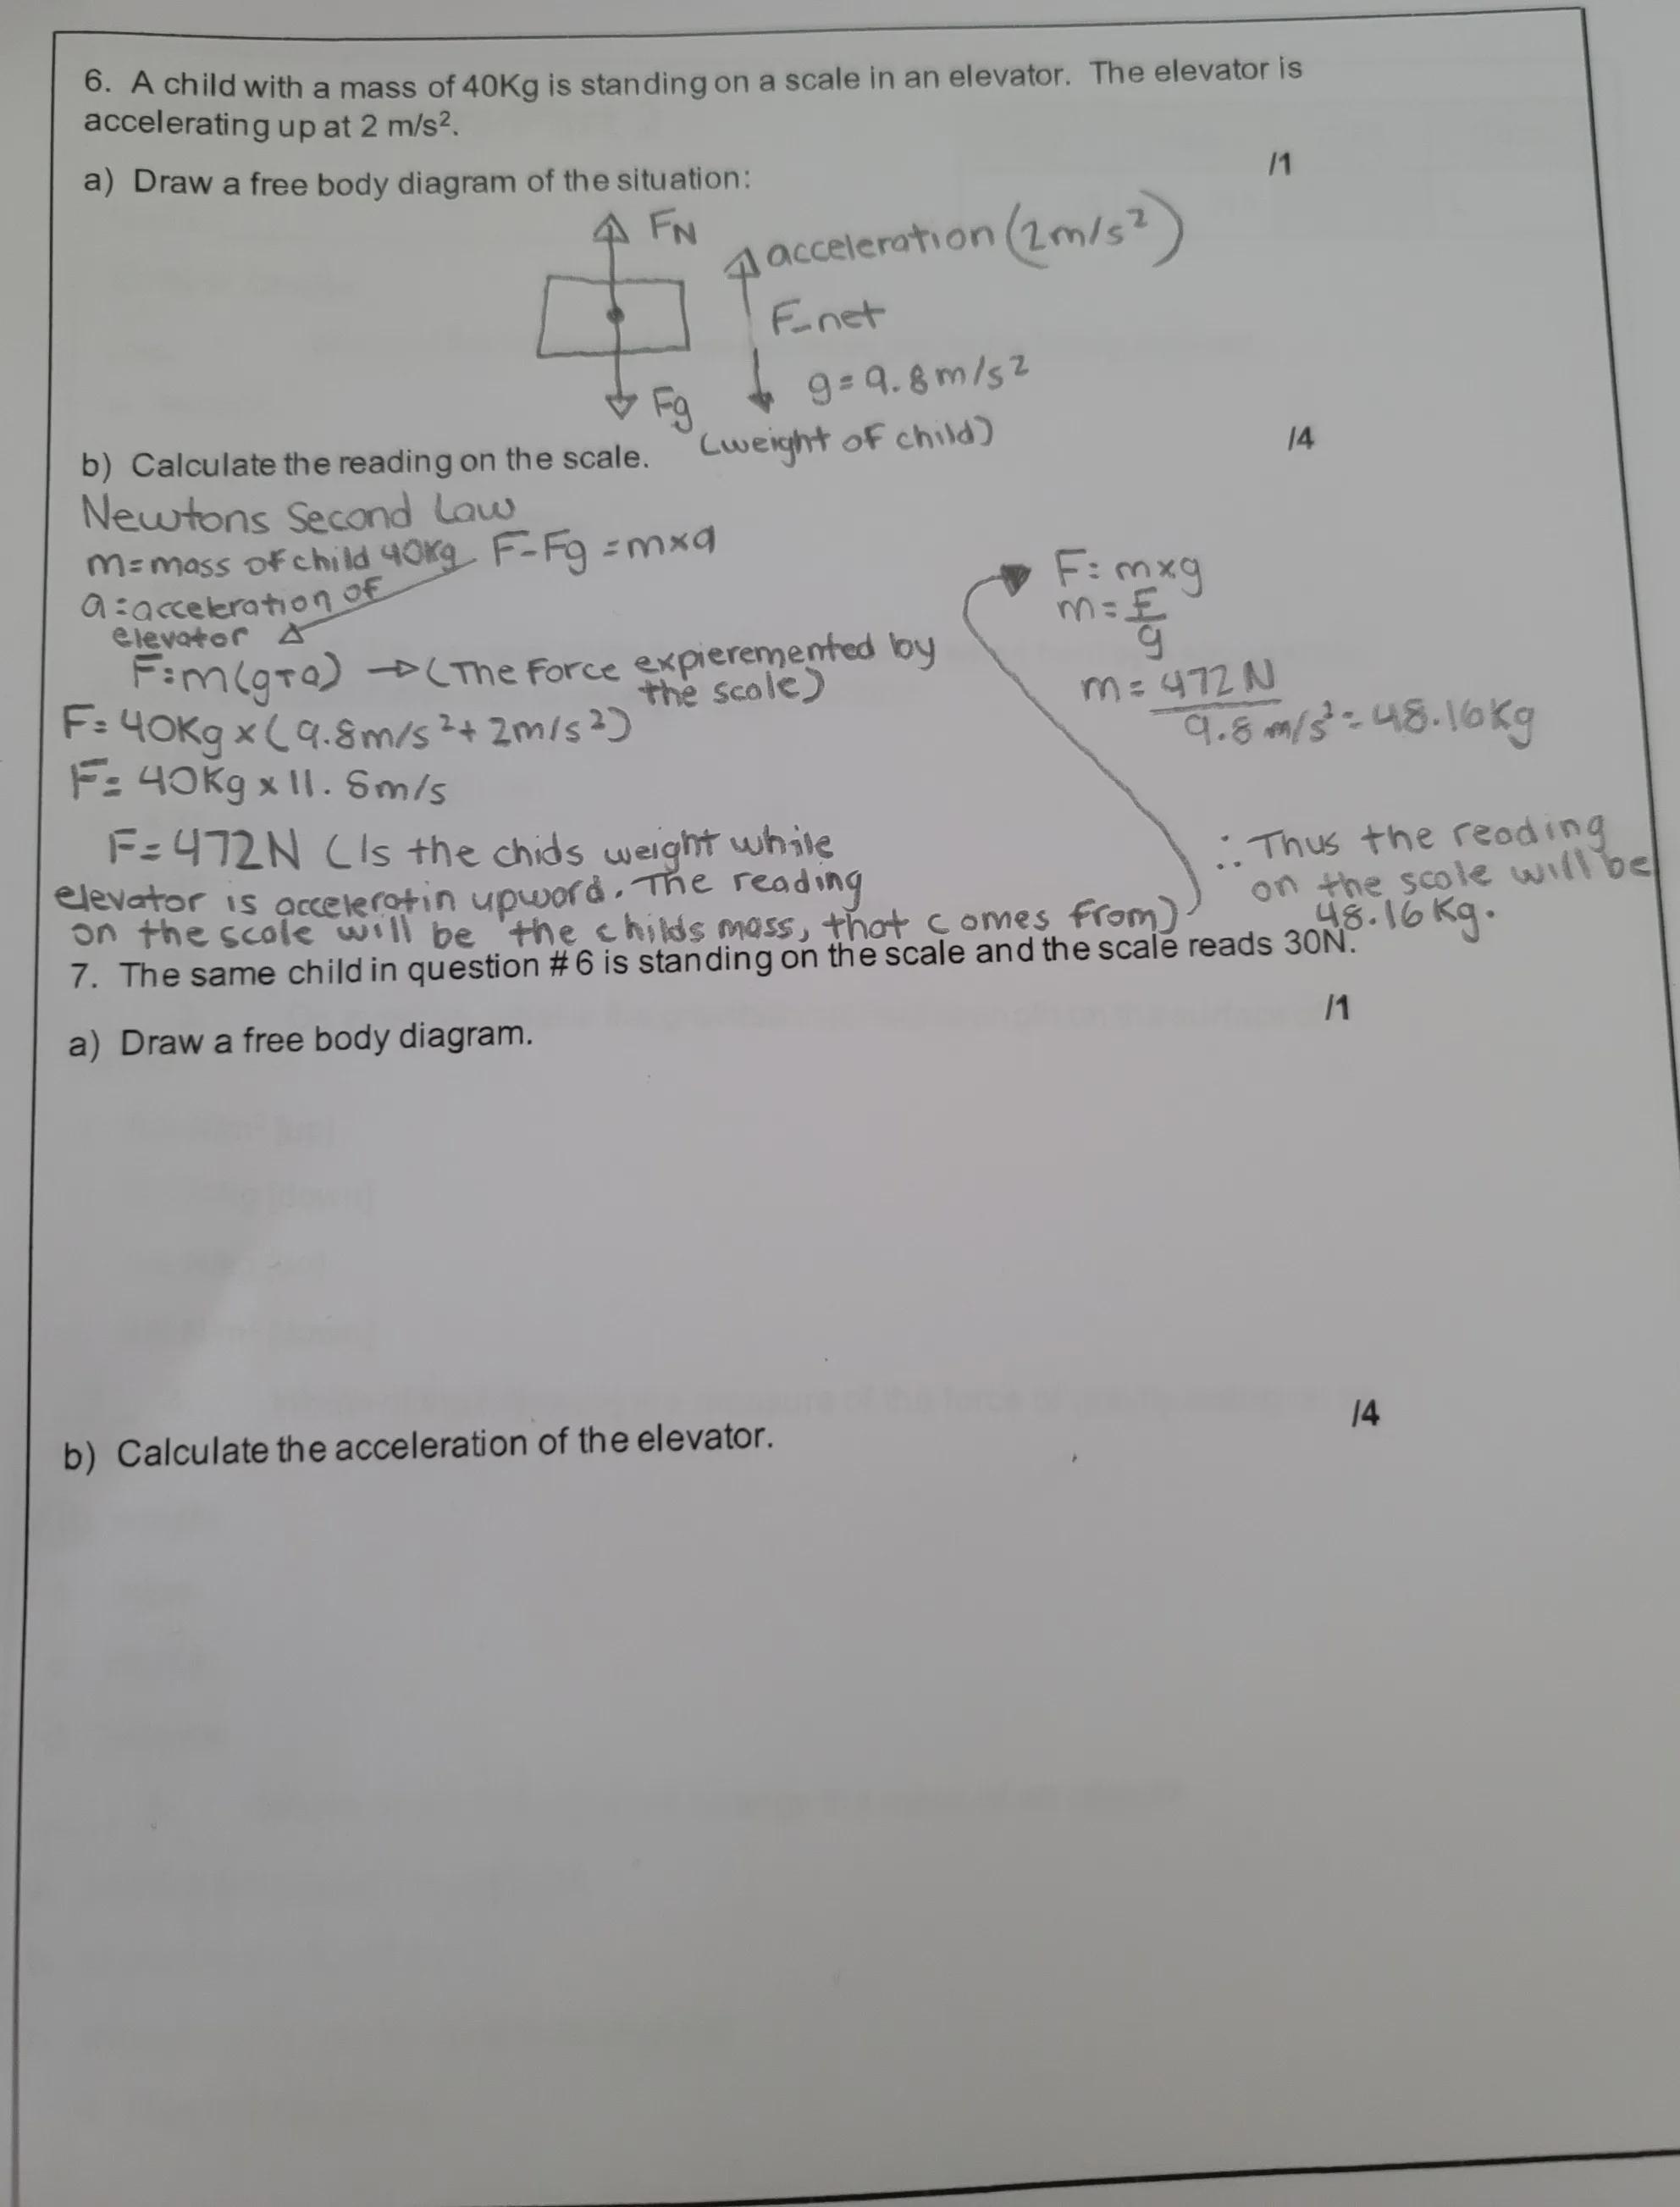 6. A child with a mass of 40Kg is standing on a scale in an elevator. The elevator is
accelerating up at 2 m/s².
a) Draw a free body diagram of the situation:
/1
FN
acceleration (2m/s²)
F_net
g=9.8m/s²
Fg
(weight of child)
b) Calculate the reading on the scale.
/4
Newtons Second Law
m=mass of child 40kg F-Fg=mxa
a=acceleration of
elevator
F=m(g+a) → (The Force expieremented by
the scale)
F=40Kg x (9.8m/s²+2m/s²)
F=40Kg x 11.8m/s
F=472N (Is the chids weight while
elevator is acceleratin upword. The reading
on the scale will be the childs mass, that comes from)
F=mxg
m=F/g
m=472N/9.8 m/s²=48.16Kg
∴ Thus the reading
on the scale will be
48.16Kg.
7. The same child in question #6 is standing on the scale and the scale reads 30N.
/1
a) Draw a free body diagram.
/4
b) Calculate the acceleration of the elevator.